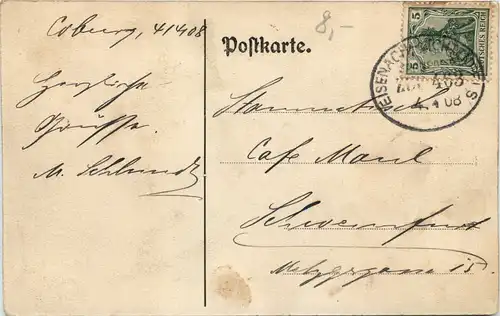 Coburg, 4/4 08
8,-
Postkarte.
5 5
DEUTSCHES REICH
EISENACH
ZUG 453
4. 4 08
Herzliche
Grüsse
M. Schlundt
Stammtisch
Café Maul
Schweinfurt
Metzgergasse 15